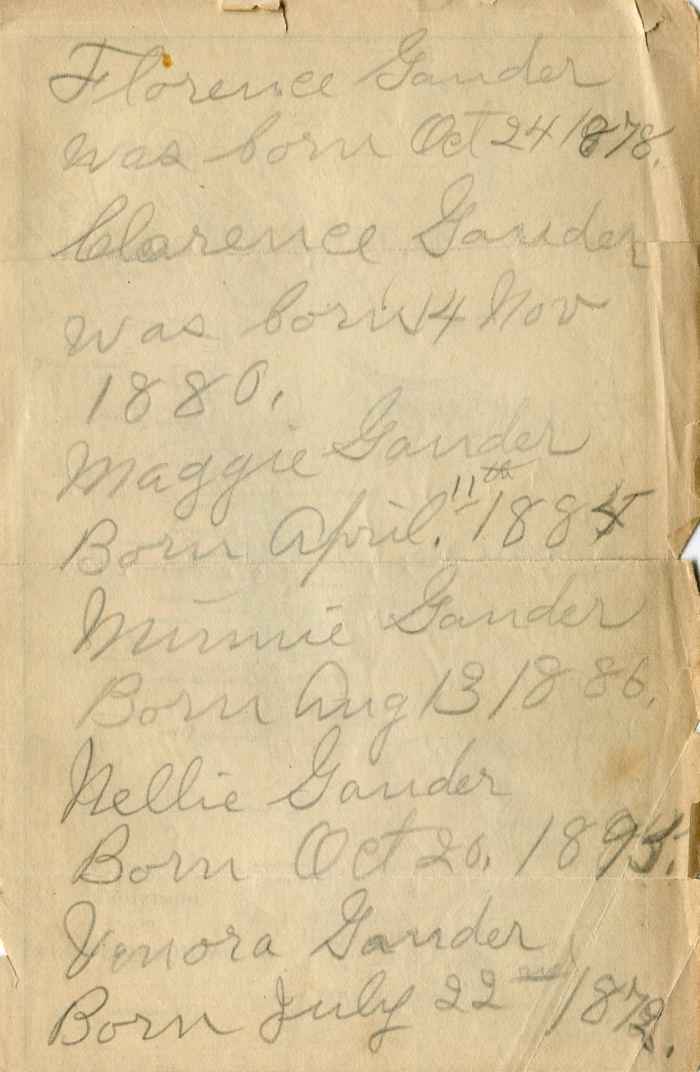 Florence Gander
was born Oct 24 1878.
Clarence Gander
was born 14 Nov
1880.
Maggie Gander
Born April. 11th 1884
Minnie Gander
Born Aug 13 1886.
Nellie Gander
Born Oct 20, 1895.
Venora Gander
Born July 22nd 1872.